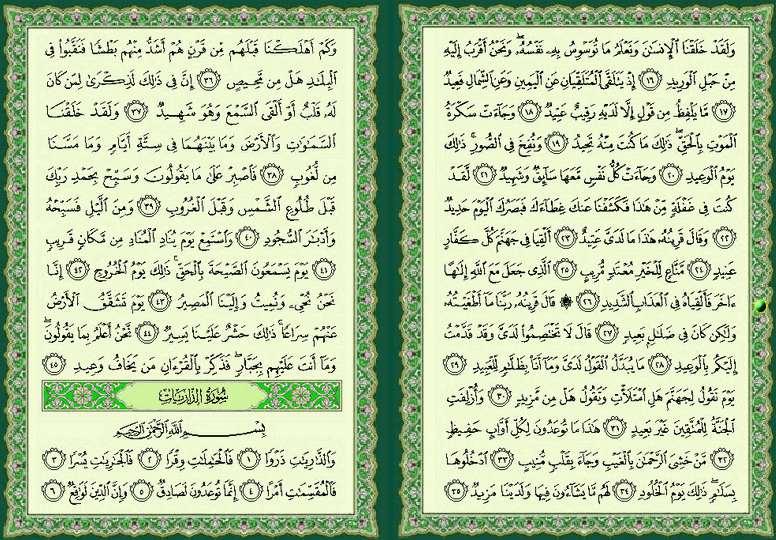 وَلَقَدْ خَلَقْنَا ٱلْإِنسَٰنَ وَنَعْلَمُ مَا تُوَسْوِسُ بِهِۦ نَفْسُهُۥ ۖ وَنَحْنُ أَقْرَبُ إِلَيْهِ
مِنْ حَبْلِ ٱلْوَرِيدِ ١٦ إِذْ يَتَلَقَّى ٱلْمُتَلَقِّيَانِ عَنِ ٱلْيَمِينِ وَعَنِ ٱلشِّمَالِ قَعِيدٌ
١٧ مَّا يَلْفِظُ مِن قَوْلٍ إِلَّا لَدَيْهِ رَقِيبٌ عَتِيدٌ ١٨ وَجَآءَتْ سَكْرَةُ
ٱلْمَوْتِ بِٱلْحَقِّ ۖ ذَٰلِكَ مَا كُنتَ مِنْهُ تَحِيدُ ١٩ وَنُفِخَ فِى ٱلصُّورِ ۚ ذَٰلِكَ
يَوْمُ ٱلْوَعِيدِ ٢٠ وَجَآءَتْ كُلُّ نَفْسٍ مَّعَهَا سَآئِقٌ وَشَهِيدٌ ٢١ لَّقَدْ
كُنتَ فِى غَفْلَةٍ مِّنْ هَٰذَا فَكَشَفْنَا عَنكَ غِطَآءَكَ فَبَصَرُكَ ٱلْيَوْمَ حَدِيدٌ
٢٢ وَقَالَ قَرِينُهُۥ هَٰذَا مَا لَدَىَّ عَتِيدٌ ٢٣ أَلْقِيَا فِى جَهَنَّمَ كُلَّ كَفَّارٍ
عَنِيدٍ ٢٤ مَّنَّاعٍ لِّلْخَيْرِ مُعْتَدٍ مُّرِيبٍ ٢٥ ٱلَّذِى جَعَلَ مَعَ ٱللَّهِ إِلَٰهًا
ءَاخَرَ فَأَلْقِيَاهُ فِى ٱلْعَذَابِ ٱلشَّدِيدِ ٢٦ ۞ قَالَ قَرِينُهُۥ رَبَّنَا مَآ أَطْغَيْتُهُۥ
وَلَٰكِن كَانَ فِى ضَلَٰلٍۭ بَعِيدٍ ٢٧ قَالَ لَا تَخْتَصِمُوا۟ لَدَىَّ وَقَدْ قَدَّمْتُ
إِلَيْكُم بِٱلْوَعِيدِ ٢٨ مَا يُبَدَّلُ ٱلْقَوْلُ لَدَىَّ وَمَآ أَنَا۠ بِظَلَّٰمٍ لِّلْعَبِيدِ ٢٩
يَوْمَ نَقُولُ لِجَهَنَّمَ هَلِ ٱمْتَلَأْتِ وَتَقُولُ هَلْ مِن مَّزِيدٍ ٣٠ وَأُزْلِفَتِ
ٱلْجَنَّةُ لِلْمُتَّقِينَ غَيْرَ بَعِيدٍ ٣١ هَٰذَا مَا تُوعَدُونَ لِكُلِّ أَوَّابٍ حَفِيظٍ
٣٢ مَّنْ خَشِىَ ٱلرَّحْمَٰنَ بِٱلْغَيْبِ وَجَآءَ بِقَلْبٍ مُّنِيبٍ ٣٣ ٱدْخُلُوهَا
بِسَلَٰمٍ ۖ ذَٰلِكَ يَوْمُ ٱلْخُلُودِ ٣٤ لَهُم مَّا يَشَآءُونَ فِيهَا وَلَدَيْنَا مَزِيدٌ ٣٥
وَكَمْ أَهْلَكْنَا قَبْلَهُم مِّن قَرْنٍ هُمْ أَشَدُّ مِنْهُم بَطْشًا فَنَقَّبُوا۟ فِى
ٱلْبِلَٰدِ هَلْ مِن مَّحِيصٍ ٣٦ إِنَّ فِى ذَٰلِكَ لَذِكْرَىٰ لِمَن كَانَ
لَهُۥ قَلْبٌ أَوْ أَلْقَى ٱلسَّمْعَ وَهُوَ شَهِيدٌ ٣٧ وَلَقَدْ خَلَقْنَا
ٱلسَّمَٰوَٰتِ وَٱلْأَرْضَ وَمَا بَيْنَهُمَا فِى سِتَّةِ أَيَّامٍ وَمَا مَسَّنَا
مِن لُّغُوبٍ ٣٨ فَٱصْبِرْ عَلَىٰ مَا يَقُولُونَ وَسَبِّحْ بِحَمْدِ رَبِّكَ
قَبْلَ طُلُوعِ ٱلشَّمْسِ وَقَبْلَ ٱلْغُرُوبِ ٣٩ وَمِنَ ٱلَّيْلِ فَسَبِّحْهُ
وَأَدْبَٰرَ ٱلسُّجُودِ ٤٠ وَٱسْتَمِعْ يَوْمَ يُنَادِ ٱلْمُنَادِ مِن مَّكَانٍ قَرِيبٍ
٤١ يَوْمَ يَسْمَعُونَ ٱلصَّيْحَةَ بِٱلْحَقِّ ۚ ذَٰلِكَ يَوْمُ ٱلْخُرُوجِ ٤٢ إِنَّا
نَحْنُ نُحْىِۦ وَنُمِيتُ وَإِلَيْنَا ٱلْمَصِيرُ ٤٣ يَوْمَ تَشَقَّقُ ٱلْأَرْضُ
عَنْهُمْ سِرَاعًا ۚ ذَٰلِكَ حَشْرٌ عَلَيْنَا يَسِيرٌ ٤٤ نَّحْنُ أَعْلَمُ بِمَا يَقُولُونَ ۖ
وَمَآ أَنتَ عَلَيْهِم بِجَبَّارٍ ۖ فَذَكِّرْ بِٱلْقُرْءَانِ مَن يَخَافُ وَعِيدِ ٤٥
سُورَةُ الذَّارِيَاتِ
بِسْمِ ٱللَّهِ ٱلرَّحْمَٰنِ ٱلرَّحِيمِ
وَٱلذَّٰرِيَٰتِ ذَرْوًا ١ فَٱلْحَٰمِلَٰتِ وِقْرًا ٢ فَٱلْجَٰرِيَٰتِ يُسْرًا ٣
فَٱلْمُقَسِّمَٰتِ أَمْرًا ٤ إِنَّمَا تُوعَدُونَ لَصَادِقٌ ٥ وَإِنَّ ٱلدِّينَ لَوَٰقِعٌ ٦